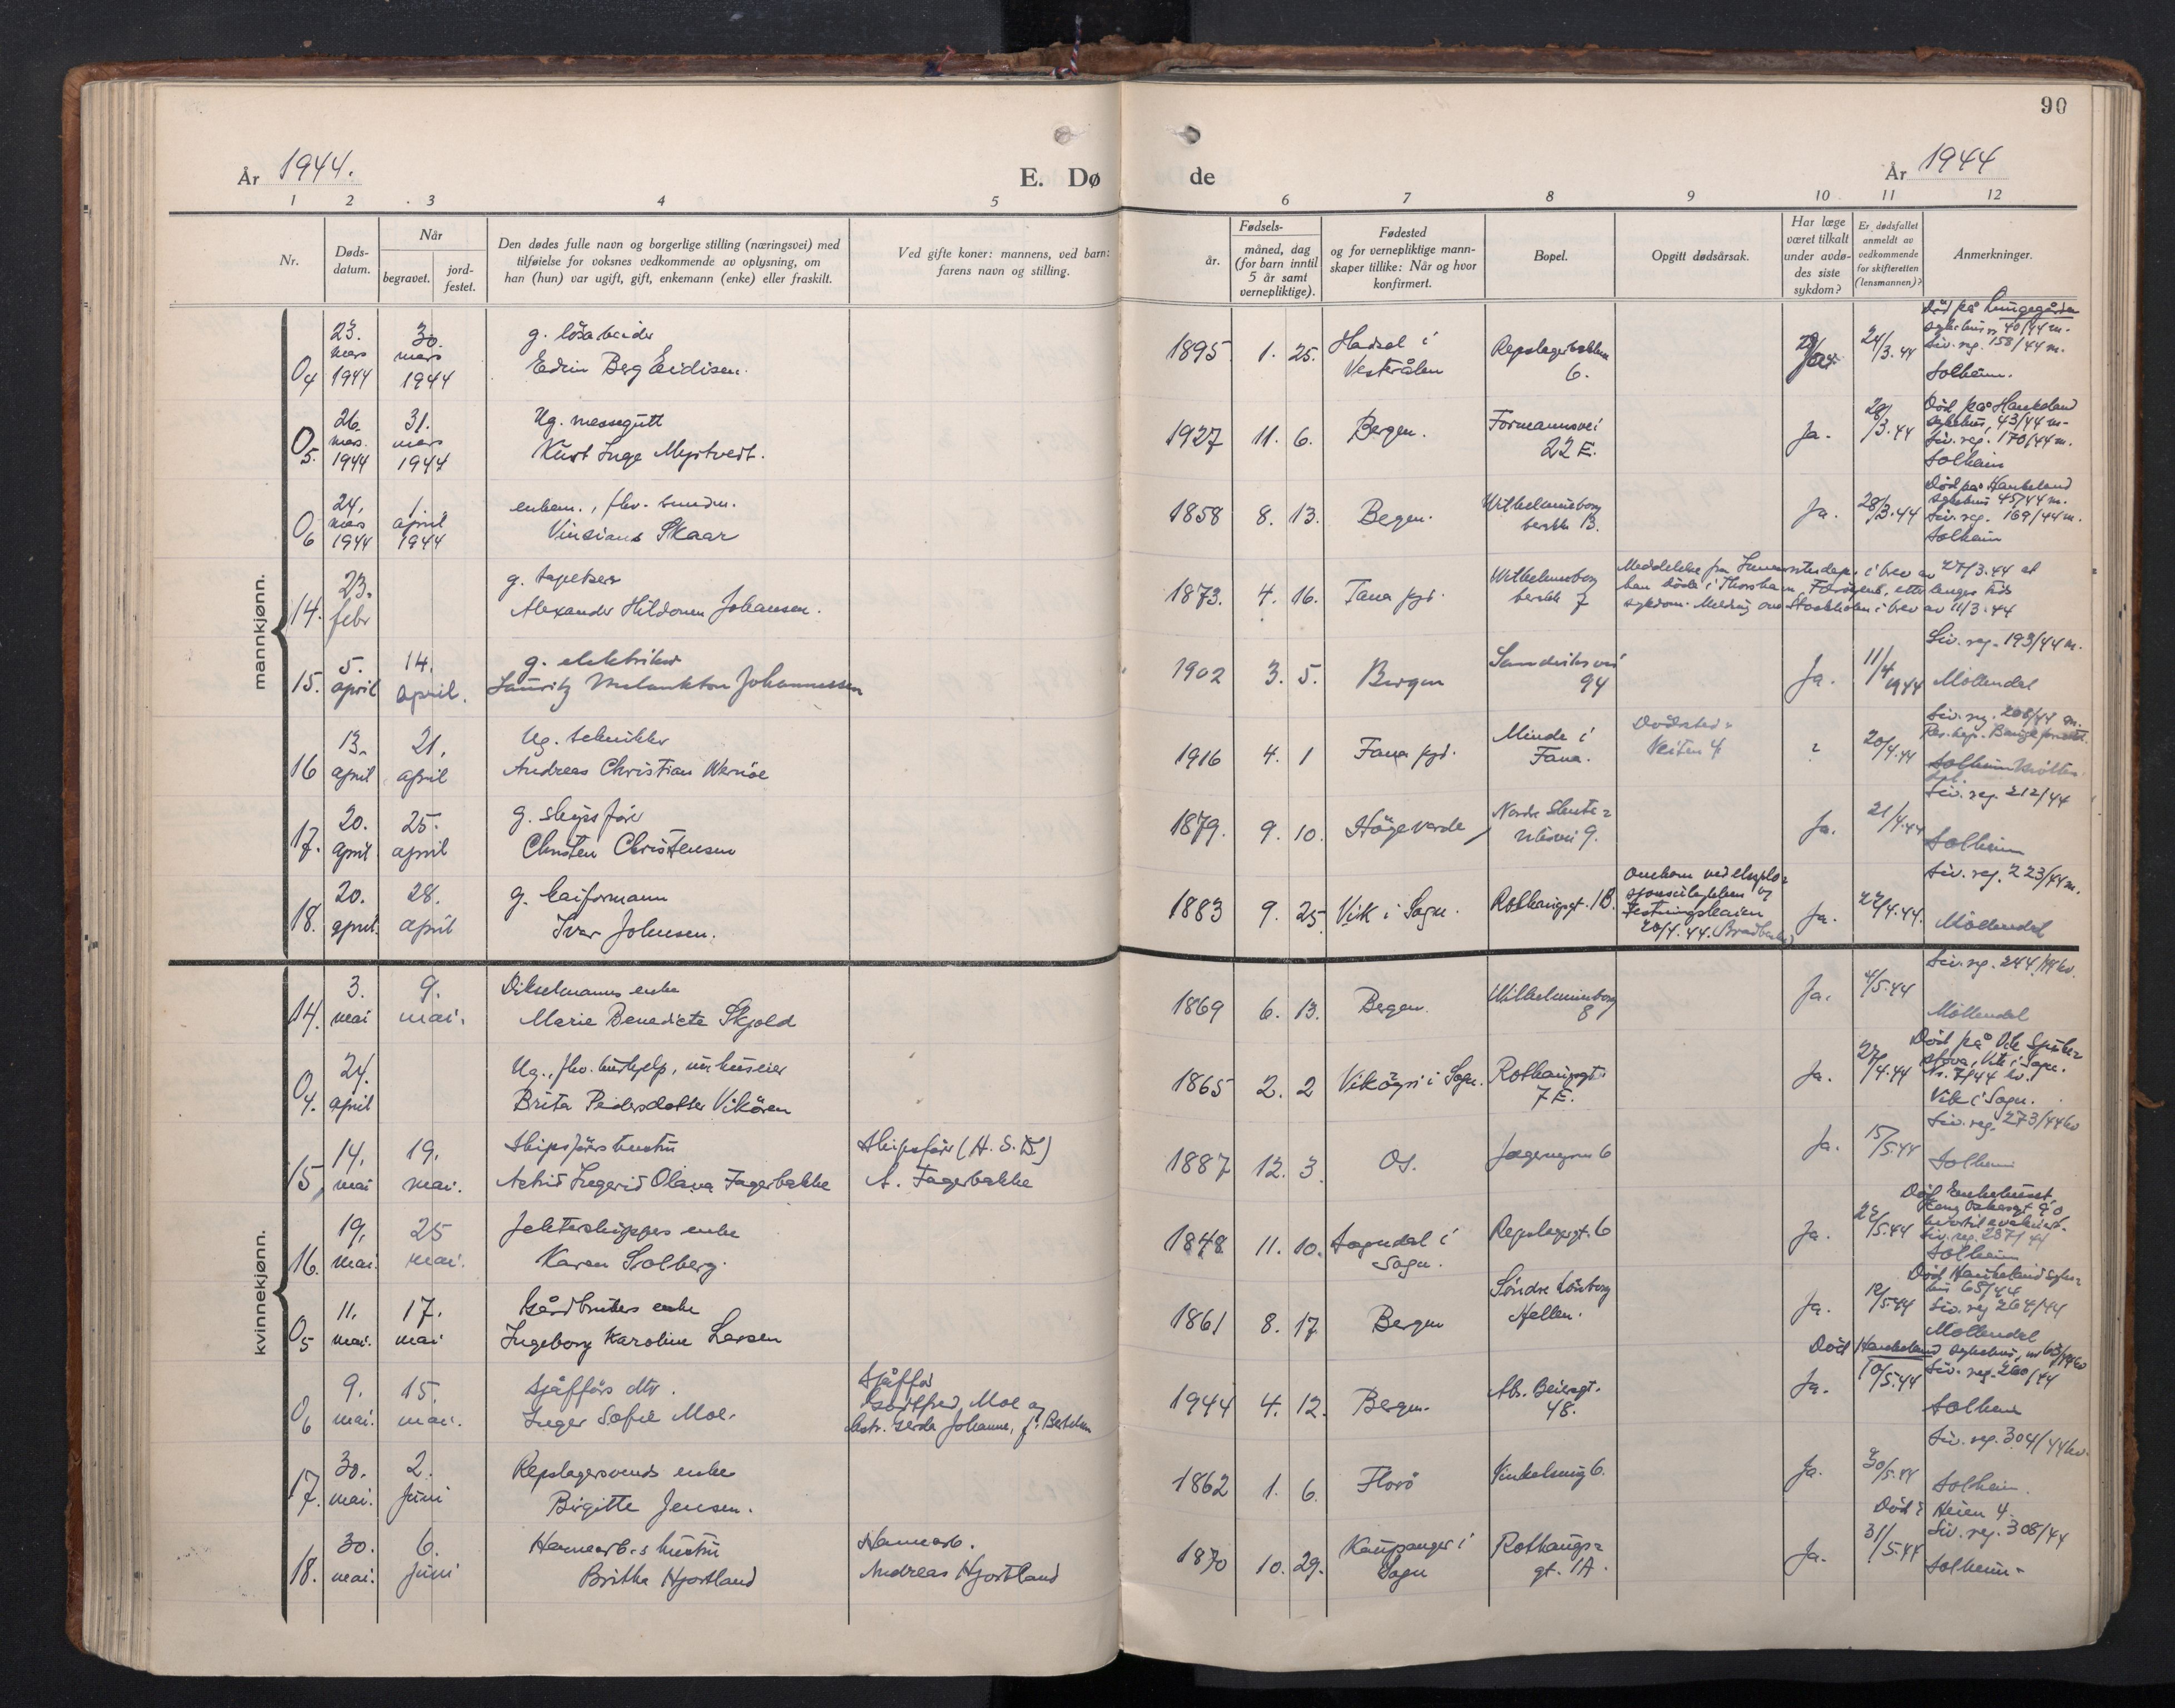 90
År 1944.
E. Dø
de
År 1944
1 2 3 4 5 6 7 8 9 10 11 12
Nr.
Døds-
datum.
Når
begravet.
jord-
festet.
Den dødes fulle navn og borgerlige stilling (næringsvei) med
tilføielse for voksnes vedkommende av oplysning, om
han (hun) var ugift, gift, enkemann (enke) eller fraskilt.
Ved gifte koner: mannens, ved barn:
farens navn og stilling.
Fødsels-
år.
måned, dag
(for barn inntil
5 år samt
vernepliktige).
Fødested
og for vernepliktige mann-
skaper tillike: Når og hvor
konfirmert.
Bopel.
Opgitt dødsårsak.
Har læge
været tilkalt
under avdø-
des siste
sykdom?
Er dødsfallet
anmeldt av
vedkommende
for skifteretten
(lensmannen)?
Anmerkninger.
mannkjønn.
04
23. mars 1944
30. mars 1944
g. løsarbeider
Edvin Berg Eidisen.
1895 1. 25.
Hadsel i
Vesterålen
Repslagerbakken
6.
Ja
24/3.44
Død på Lungegården
sykehus 40/44 m.
Liv. reg. 158/44 m.
Solheim.
05.
26. mars. 1944
31. mars 1944
Ug. messegutt
Kurt Inge Myrtvedt.
1927 11. 6.
Bergen.
Formannsvei
22 E.
Ja.
28/3.44
Død på Haukeland
sykehus, 43/44 m.
Liv. reg. 170/44 m.
Solheim
06
24. mars 1944
1. april 1944
enkem., fhv.
Skaar
1858 8. 13.
Bergen.
Wilhelmineborg
13.
Ja.
28/3.44
Død på Haukeland
sykehus 45/44 m.
Liv. reg. 169/44 m.
Solheim
14.
23. febr
g. tapetserer
Alexander Hildonen Johansen.
1873. 4. 16.
Fana pgd.
Wilhelmineborg
7
Meddelelse fra i brev av 27/3.44 at
han døde i Thorshavn, Færøyene, etter lengre tids
sykdom. Melding om Stockholm i brev av 11/3.44
15.
5. april
14. april.
g. elektriker
Lauritz Melankton Johannessen
1902 3. 5.
Bergen
Sandviksvei
94
Ja.
11/4 1944
Liv. reg. 193/44 m.
Møllendal
16
13. april
21. april
Ug. tekniker
Andreas Christian Wernøe
1916 4. 1
Fana pgd.
Minde i
Fana.
Dødsted:
Veiten 4
?
20/4.44
Liv. reg. 208/44 m.
Solheim
17.
20. april
25. april
g. skipsfører
Christen Christensen
1879. 9. 10.
Høgevarde
Nordre Skute-
viksvei 9.
Ja.
21/4.44
Liv. reg. 212/44
Solheim
18.
20. april.
28. april
g. kaiformann
Ivar Johnsen.
1883 9. 25
Vik i Sogn.
Rothaugsgt. 1B.
Omkom ved eksplo-
sjonsulykken
Festningskaien
20/4.44.
Ja.
22/4.44.
Liv. reg. 223/44 m.
Møllendal
kvinnekjønn.
14.
3. mai
9. mai.
enke
Marie Benedicte Skjold
1869 6. 13.
Bergen.
Wilhelmineborg
8
Ja.
4/5.44
Liv. reg. 244/44 kv.
Møllendal
04.
24. april
Ug., fhv. hushjelp, nu huseier
Brita Pedersdatter Vikøren
1865 2. 2
Vikøyri i Sogn.
Rothaugsgt.
7 E.
Ja.
27/4.44
Død på Vik Sjuke-
stova, Vik i Sogn.
Nr. 7/44 kv.
Vik i Sogn.
15
14. mai
19. mai.
Skipsførers hustru
Astrid Ingerid Olava Fagerbakke
Skipsfører (H. S. D.)
A. Fagerbakke
1887 12. 3
Os.
6
Ja.
15/5.44
Liv. reg. 273/44 kv
Solheim
16.
19. mai.
25 mai.
Jekteskippers enke
Karen Solberg.
1848 11. 10.
Sogndal i
Sogn.
Repslagergt. 6
Ja.
22/5.44
Død Enkehuset,
Kong Oskarsgt
evakuert.
Liv. reg. 287/44
Solheim
05
11. mai.
17. mai
Gårdbrukers enke
Ingeborg Karoline Larsen
1861 8. 17
Bergen
Søndre Lønborg
Hellen.
Ja.
12/5.44
Død Haukeland syke-
hus 65/44
Liv. reg 264/44
Møllendal
06
9. mai.
15. mai.
Sjåførs dtr.
Inger Sofie Moe.
Sjåfør
Gottfred Moe og
hustr. Gerda Johanne, f.
1944 4. 12.
Bergen.
Abs. Beiersgt.
48.
Ja.
10/5.44
Død Haukeland sykehus, nr 63/44 kv
Liv. reg. 260/44
Solheim
17.
30. mai.
2. Juni
Repslagersvends enke
Birgitte Jensen.
1862 1. 6.
Florø
Vinkelsmug 6.
Ja.
30/5.44
Liv. reg. 304/44 kv.
Solheim.
18.
30. mai.
6. Juni
Havnearb.s hustru
Britha Hjortland
Havnearb.
Andreas Hjortland
1870 10. 29.
Kaupanger i
Sogn
Rothaugs-
gt. 1A.
Ja.
31/5.44
Død i Heien 4.
Liv. reg. 308/44
Solheim.